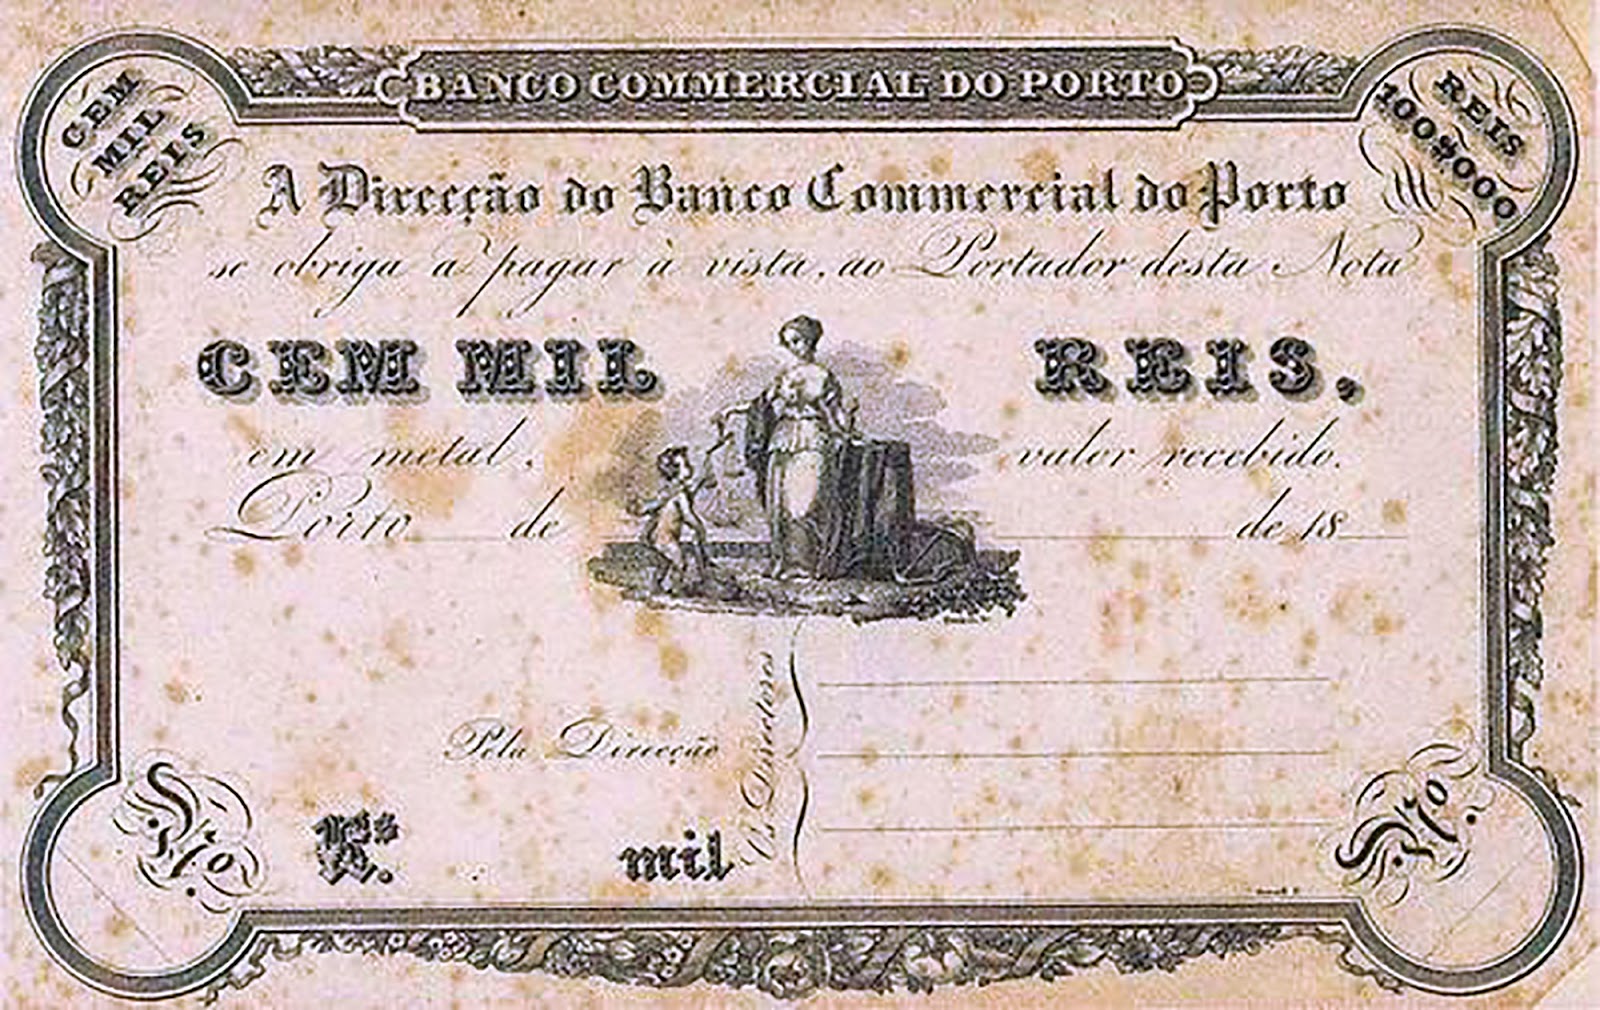 BANCO COMMERCIAL DO PORTO
CEM
MIL
REIS
REIS
100$000
A Direcção do Banco Commercial do Porto
se obriga a pagar à vista, ao Portador desta Nota
CEM MIL REIS,
em metal, valor recebido.
Porto de de 18
Pela Direcção
Os Directores
No.
Rs. mil
No.